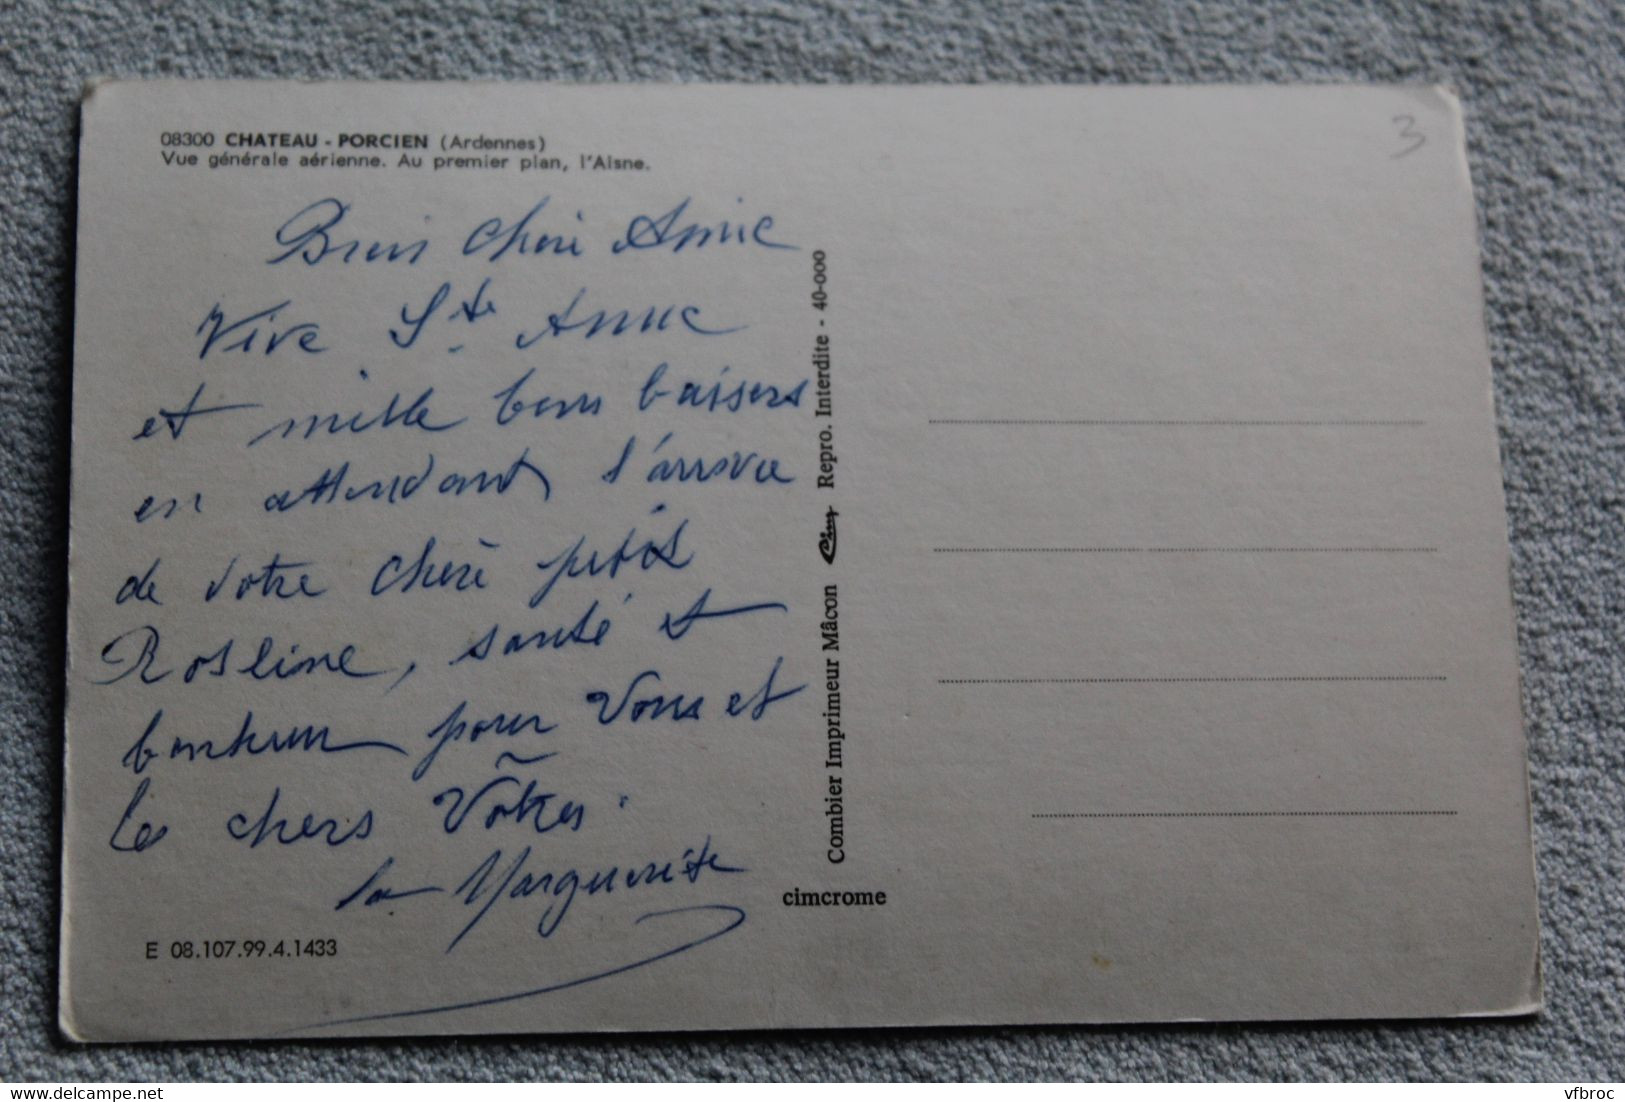 08300 CHATEAU - PORCIEN (Ardennes)
Vue générale aérienne. Au premier plan, l'Aisne.
3
chère Annie
Vive Ste Anne
et mille bons baisers
en attendant l'arrivée
de votre chère petite
Rosline, santé et
bonheur pour Vous et
les chers Vôtres.
la Marguerite
Combier Imprimeur Mâcon Cim Repro. Interdite - 40-000
cimcrome
E 08.107.99.4.1433
delcampe.net
vfbroc